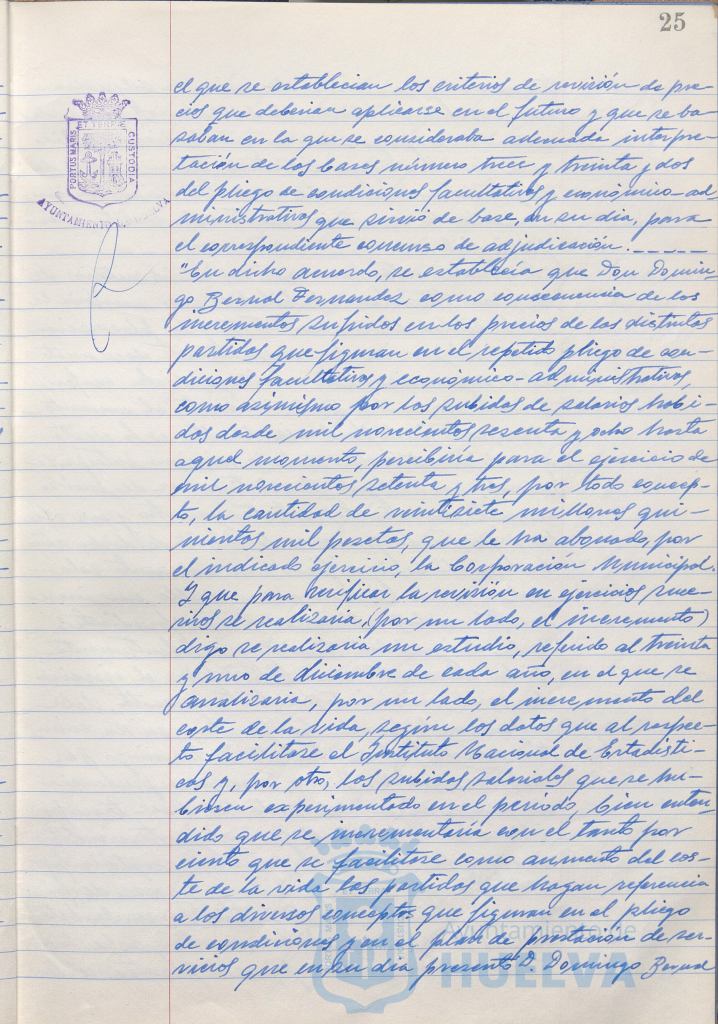 25
PORTUS MARIS ET TERRE CUSTODIA
AYUNTAMIENTO HUELVA
el que se establecian los criterios de revisión de pre-
cios que deberian aplicarse en el futuro y que se ba
saban en la que se consideraba adecuada interpre-
tación de las bases número trece y treinta y dos
del pliego de condiciones facultativas y económico-ad-
ministrativas que sirvió de base, en su dia, para
el correspondiente concurso de adjudicación.-----
"En dicho acuerdo, se establecía que Don Domin-
go Bernal Fernandez como consecuencia de los
incrementos sufridos en los precios de las distintas
partidas que figuran en el repetido pliego de con-
diciones facultativas y económico-administrativas,
como asimismo por las subidas de salarios habi-
das desde mil novecientos sesenta y ocho hasta
aquel momento, percibiría para el ejercicio de
mil novecientos setenta y tres, por todo concep-
to, la cantidad de veintisiete millones qui-
nientas mil pesetas, que le ha abonado, por
el indicado ejercicio, la Corporación Municipal.
Y que para verificar la revisión en ejercicios suce-
sivos se realizaria, (por un lado, el incremento)
digo se realizaria un estudio, referido al treinta
y uno de diciembre de cada año, en el que se
analizaria, por un lado, el incremento del
coste de la vida, según los datos que al respec-
to facilitase el Instituto Nacional de Estadisti-
cas y, por otro, las subidas salariales que se hu-
biesen experimentado en el periodo, bien enten-
dido que se incrementaría con el tanto por
ciento que se facilitase como aumento del cos-
te de la vida las partidas que hagan referencia
a los diversos conceptos que figuran en el pliego
de condiciones y en el plan de prestación de ser-
vicios que en su dia presentó D. Domingo Bernal
Ayuntamiento de
HUELVA